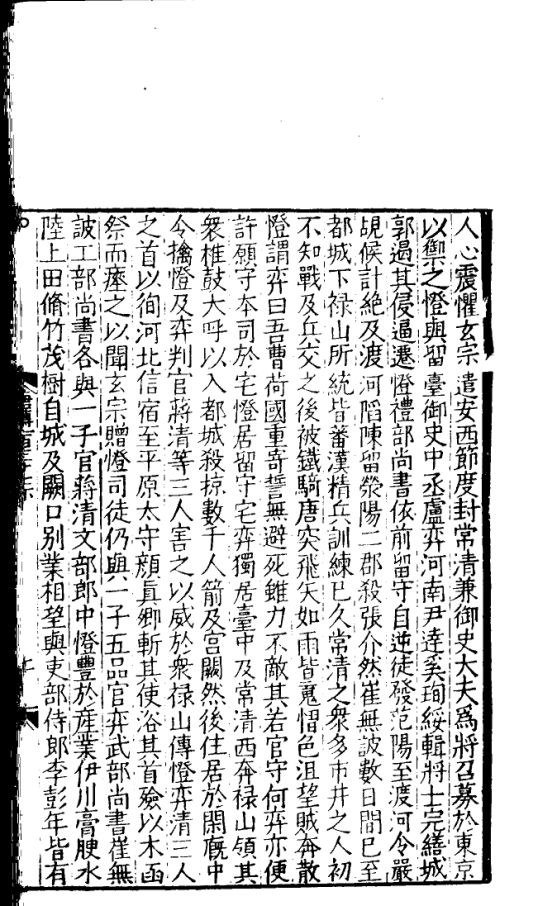 人心震懼玄宗遣安西節度封常清兼御史大夫爲將召募於東京
以禦之憕與留臺御史中丞盧弈河南尹達奚珣綏輯將士完繕城
郭遏其侵逼遷憕禮部尚書依前留守自逆徒發范陽至渡河令嚴
覘候計絕及渡河陷陳留滎陽二郡殺張介然崔無詖數日間已至
都城下禄山所統皆蕃漢精兵訓練已久常清之衆多市井之人初
不知戰及兵交之後被鐵騎唐突飛矢如雨皆䰟慴色沮望賊奔散
憕謂弈曰吾曹荷國重寄誓無避死雖力不敵其若官守何弈亦便
許願守本司於宅憕居留守宅弈獨居臺中及常清西奔禄山領其
衆椎鼓大呼以入都城殺掠數千人箭及宮闕然後住居於閑廐中
令擒憕及弈判官蔣清等三人害之以威於衆禄山傳憕弈清三人
之首以徇河北信宿至平原太守顔真卿斬其使浴其首殮以木函
祭而瘞之以聞玄宗贈憕司徒仍與一子五品官弈武部尚書崔無
詖工部尚書各與一子官蔣清文部郎中憕豐於産業伊川膏腴水
陸上田脩竹茂樹自城及闕口別業相望與吏部侍郎李彭年皆有